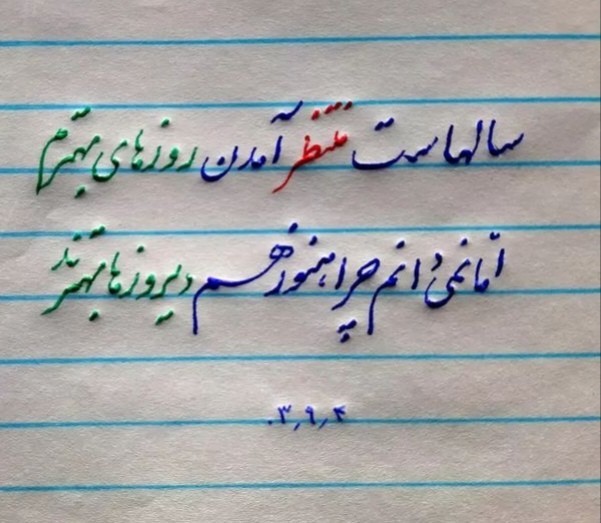 سالهاست منتظر آمدن روزهای بهترم
امّا نمی دانم چرا هنوز هم دیروزها بهترند
۰۳٫۹٫۴